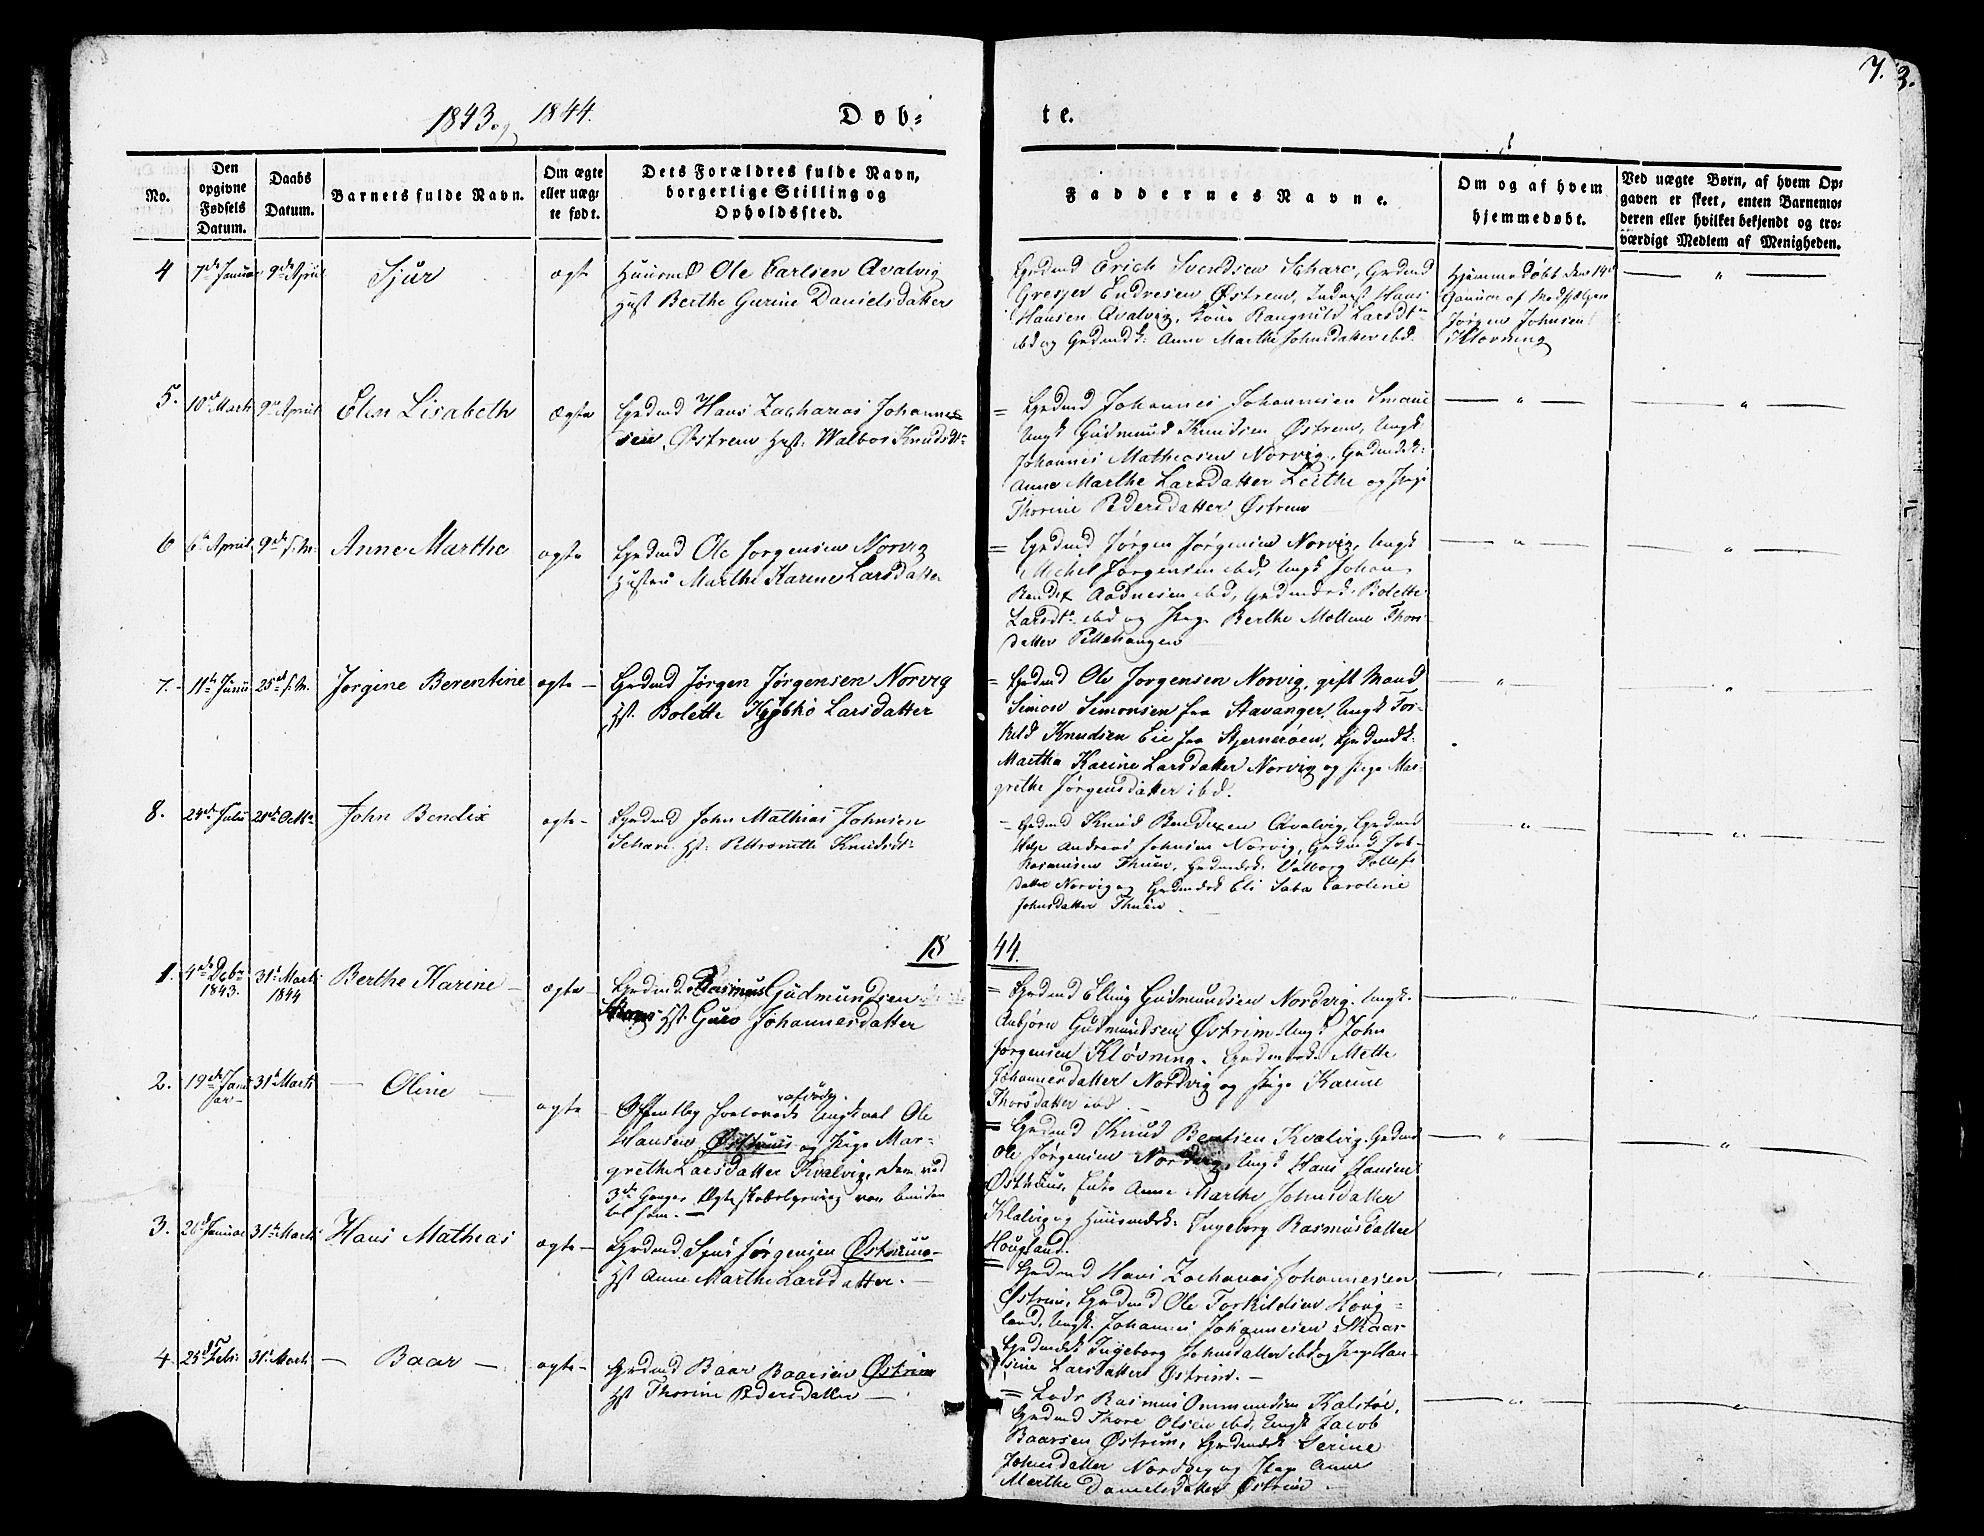 1843 og 1844.
Døb-
te.
7. 3.
No.
Den opgivne Fødsels Datum.
Daabs Datum.
Barnets fulde Navn.
Om ægte eller uæg- te født.
Dets Forældres fulde Navn, borgerlige Stilling og Opholdssted.
Faddernes Navne.
Om og af hvem hjemmedøbt.
Ved uægte Børn, af hvem Op- gaven er skeet, enten Barnemo- deren eller hvilket bekjendt og tro- værdigt Medlem af Menigheden.
4
7de Januar
9de April
Sjur
ægte
Huusmd Ole Carlsen Qvalvig
Hust Berthe Gurine Danielsdatter
Grdmd Erich Svendsen Schare, Grdmd
Endresen Østrem, Hans
Hansen Qvalvig, Kone Rangnild Larsdtr
ibd og Grdmdsk: Anne Marthe Johnsdatter ibd.
Hjemmedøbt den 14de
Januar af Medhjelper
Jørgen Johnsen
Kløvning
5.
10de Marts
9de April
Elen Lisabeth
Ægte
Grdmd Hans Zacharias Johanne-
sen, Østrem Hust: Walbor Knudsdtr
= Grdmd Johannes Johannesen
Ungk Gudmund Knudsen Østrem, Ungk:
Johannes Mathiasen Norvig, Grdmdsk:
Anne Marthe Larsdatter og Pige
Thorine Pedersdatter Østrem
6
6te April
9de s. M.
Anne Marthe
ægte
Grdmd Ole Jørgensen Norvig
Hustru Marthe Karine Larsdatter
= Grdmd Jørgen Jørgensen Norvig, Ungk
Michel Jørgensen ibd, Ungk Johan
Bendix Aadnesen ibd, Grdmdsk: Bolette
Larsdtr ibd og Pige Berthe Thors-
datter
7.
11te Juni
25de s. M.
Jørgine Berentine
ægte
Grdmd Jørgen Jørgensen Norvig
Hst. Bolette Larsdatter
= Grdmd Ole Jørgensen Norvig, gift Mand
Simon Simonsen fra Stavanger, Ungk Tor-
kild Knudsen Eie fra Stjernerøen, Grdmdsk:
Martha Karine Larsdatter Norvig og Pige Mar-
grethe Jørgensdatter ibd.
8.
24de Juli
28de
John Bendix
ægte
Grdmd John Mathias Johnsen
Schare Hst: Knudsdtr
= Grdmd Knud Bendixen Qvalvig, Grdmd
Andreas Johnsen Norvig, Grdmd Job
Rasmusen Thuen, Grdmdsk: Valborg
datter Norvig og Grdmdsk Eli Caroline
Johnsdatter Thuen
18
44.
1.
4de
1843.
31te Marti
1844
Berthe Karine
ægte
Grdmd Rasmus Gudmundsen
Hst. Guro Johannesdatter
= Grdmd Elling Gudmundsen Nordvig. Ungk.
Asbjørn Gudmundsen Østrim. Ungk John
Jørgensen Kløvning. Grdmandsk: Mette
Johannesdatter Nordvig og Pige Karine
Thorsdatter ibd.
2.
19de Janu
ar
31te Marti
Oline
ægte
afdøde
Offentlig forlovede Ungkarl Ole
Hansen og Pige Mar-
grethe Larsdatter Kvalvig, dem ved
3de Ganges
= Grdmd Knud Kvalvig. Grdmd
Ole Jørgensen Nordvig, Ungk Hans Hansen
Enke Anne Marthe Johnsdatter
og Huusmdsk: Ingeborg Rasmusdatter
Hougland.
3.
Januar
31te Marti
Hans Mathias
ægte
Grdmd. Jørgensen
Hst Anne Marthe Larsdatter.
= Grdmd Hans Zacharias Johannesen
Østrim, Grdmd Ole Torkildsen Houg-
land, Ungk. Johannes Johannesen Skaar
Grdmdsk Ingeborg Johnsdatter ibd og Pige Han-
sine Larsdatter Østrim.
4.
25de Febr:
31te Marti
Baar
ægte
Grdmd Baar Baarsen Østrim
Hst Thorine Pedersdatter
= Lods Rasmus Ommundsen Kalstøe,
Grdmd Thore Olsen ibd, Ungk Jacob
Baarsen Østrim, Grdmdsk Serine
Johnsdatter Nordvig og Pige Anne
Marthe Danielsdatter Østrim